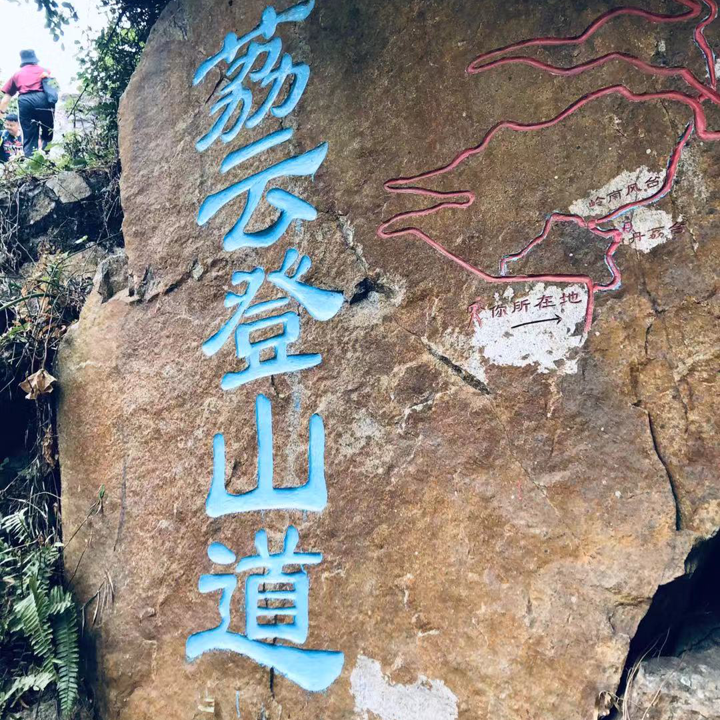 荔云登山道
岭南风台
丹荔台
你所在地